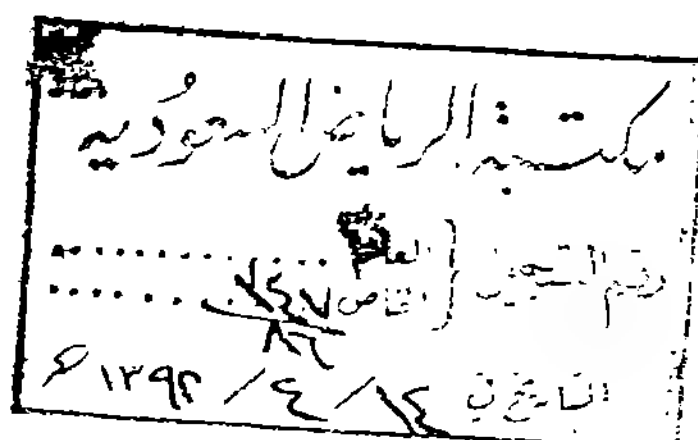 مكتبة الرياض السعودية
رقم التسجيل { العام ..........
الخاص ٧٤٧/٨٦ ..........
التاريخ في ١٤ / ٤ / ١٣٩٢ هـ